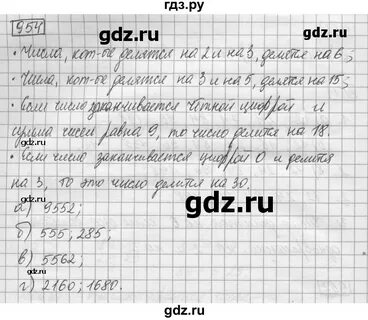 гдз.ру
954
• Числа, кот-ые делятся на 2 и на 3, делятся на 6;
• Числа, кот-ые делятся на 3 и на 5, делятся на 15;
• Если число заканчивается чётной цифрой и
сумма чисел равна 9, то число делится на 18.
• Если число заканчивается цифрой 0 и делится
на 3, то это число делится на 30.
а) 9552;
б) 555; 285;
в) 5562;
г) 2160; 1680.
gdz.ru
gdz.ru
gdz.ru
gdz.ru
gdz.ru
gdz.ru